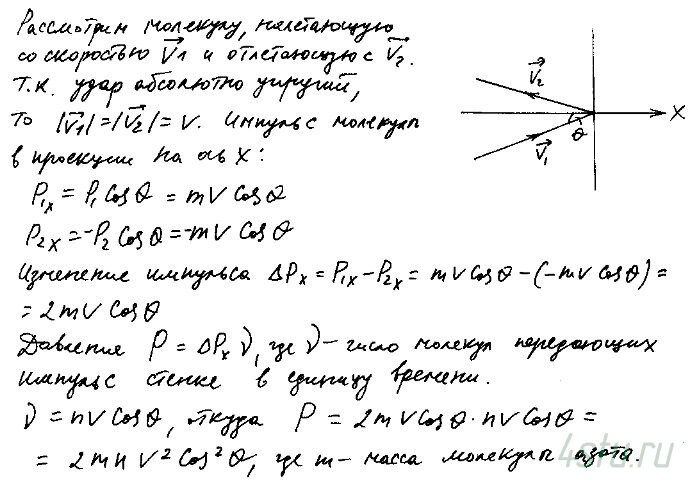 Рассмотрим молекулу, налетающую
со скоростью V⃗1 и отлетающую с V⃗2.
Т.к. удар абсолютно упругий,
то |V⃗1|=|V⃗2|=V. Импульс молекулы
в проекции на ось X:
P1x = P1 Cos θ = mV Cos θ
P2x = -P2 Cos θ = -mV Cos θ
Изменение импульса ΔPx = P1x - P2x = mV Cos θ - (-mV Cos θ) =
= 2mV Cos θ
Давление P = ΔPx ν, где ν - число молекул передающих
импульс стенке в единицу времени.
ν = nV Cos θ, откуда P = 2mV Cos θ · nV Cos θ =
= 2mn V² Cos² θ, где m - масса молекулы азота.
V⃗2
X
θ
V⃗1
4stu.ru